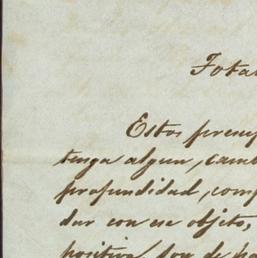 Total
Estos presup
tenga algun, camb
profundidad, comp
dar con ese objeto,
positiva, son de